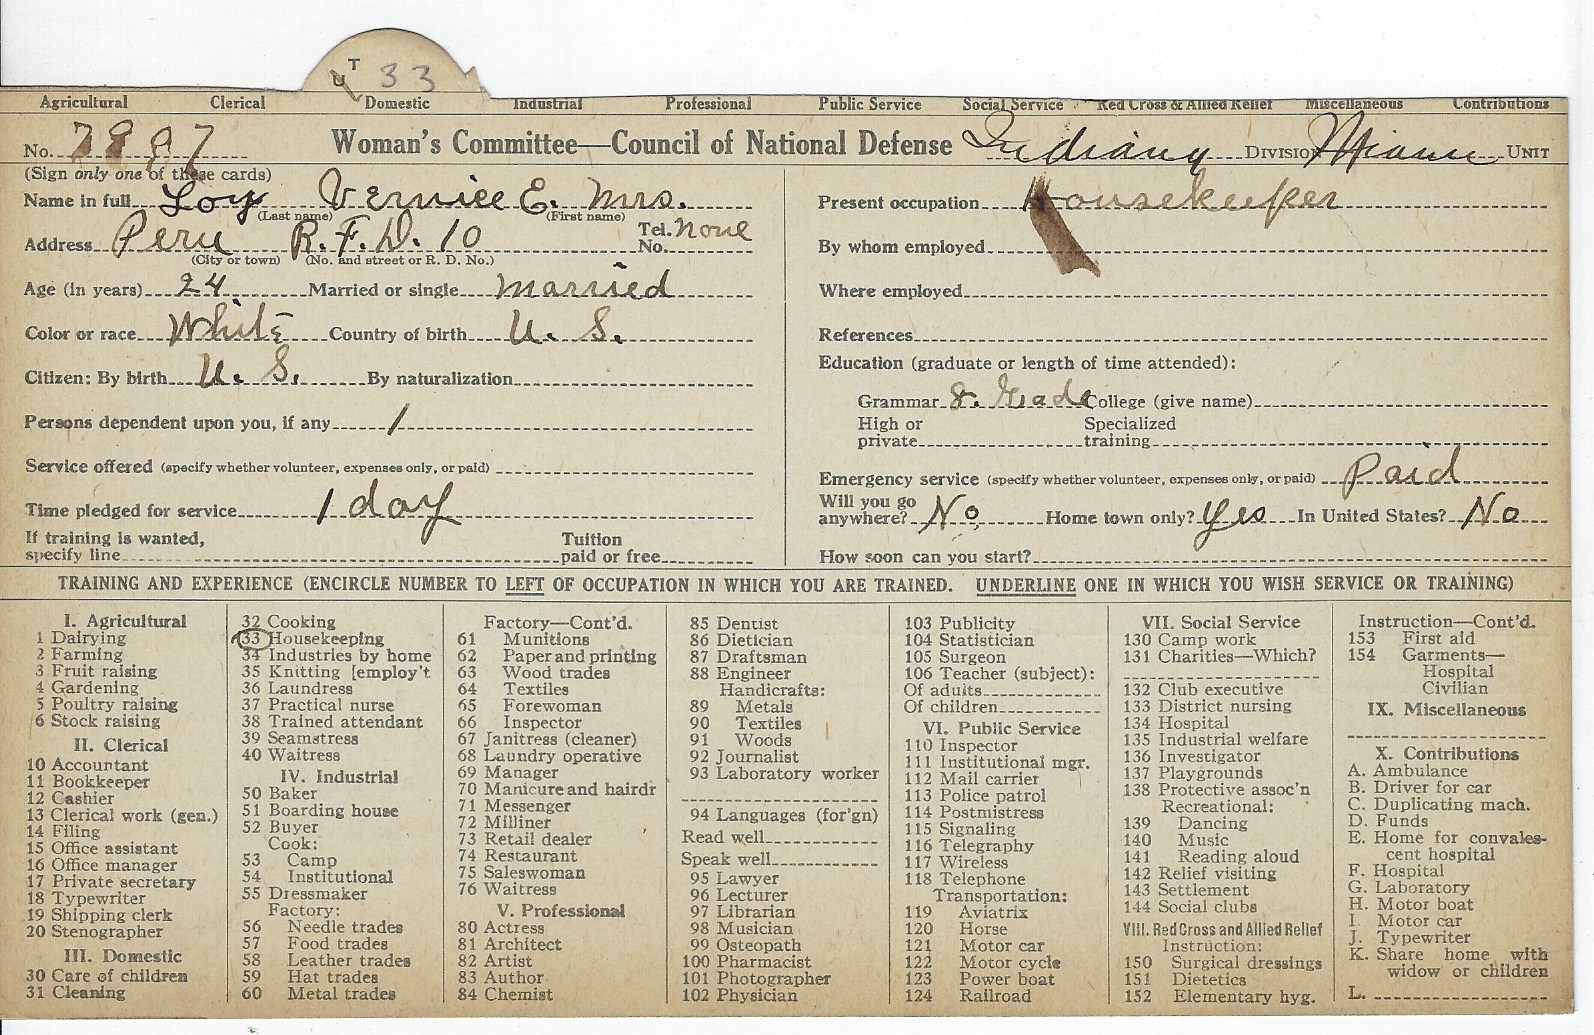 UT 33
Agricultural Clerical Domestic Industrial Professional Public Service Social Service Red Cross & Allied Relief Miscellaneous Contributions
No. 7897 Woman's Committee—Council of National Defense Indiana DIVISION Miami UNIT
(Sign only one of these cards)
Name in full Loy Vernice E. Mrs.
(Last name) (First name)
Address Peru R.F.D. 10 Tel. No. none
(City or town) (No. and street or R. D. No.)
Age (in years) 24 Married or single married
Color or race White Country of birth U. S.
Citizen: By birth U. S. By naturalization
Persons dependent upon you, if any 1
Service offered (specify whether volunteer, expenses only, or paid)
Time pledged for service 1 day
If training is wanted, specify line Tuition paid or free
Present occupation Housekeeper
By whom employed
Where employed
References
Education (graduate or length of time attended):
Grammar 8. Grade College (give name)
High or private Specialized training
Emergency service (specify whether volunteer, expenses only, or paid) Paid
Will you go anywhere? No Home town only? Yes In United States? No
How soon can you start?
TRAINING AND EXPERIENCE (ENCIRCLE NUMBER TO LEFT OF OCCUPATION IN WHICH YOU ARE TRAINED. UNDERLINE ONE IN WHICH YOU WISH SERVICE OR TRAINING)
I. Agricultural
1 Dairying
2 Farming
3 Fruit raising
4 Gardening
5 Poultry raising
6 Stock raising
II. Clerical
10 Accountant
11 Bookkeeper
12 Cashier
13 Clerical work (gen.)
14 Filing
15 Office assistant
16 Office manager
17 Private secretary
18 Typewriter
19 Shipping clerk
20 Stenographer
III. Domestic
30 Care of children
31 Cleaning
32 Cooking
33 Housekeeping
34 Industries by home
35 Knitting [employ't
36 Laundress
37 Practical nurse
38 Trained attendant
39 Seamstress
40 Waitress
IV. Industrial
50 Baker
51 Boarding house
52 Buyer
Cook:
53 Camp
54 Institutional
55 Dressmaker
Factory:
56 Needle trades
57 Food trades
58 Leather trades
59 Hat trades
60 Metal trades
Factory—Cont'd.
61 Munitions
62 Paper and printing
63 Wood trades
64 Textiles
65 Forewoman
66 Inspector
67 Janitress (cleaner)
68 Laundry operative
69 Manager
70 Manicure and hairdr
71 Messenger
72 Milliner
73 Retail dealer
74 Restaurant
75 Saleswoman
76 Waitress
V. Professional
80 Actress
81 Architect
82 Artist
83 Author
84 Chemist
85 Dentist
86 Dietician
87 Draftsman
88 Engineer
Handicrafts:
89 Metals
90 Textiles
91 Woods
92 Journalist
93 Laboratory worker
94 Languages (for'gn)
Read well
Speak well
95 Lawyer
96 Lecturer
97 Librarian
98 Musician
99 Osteopath
100 Pharmacist
101 Photographer
102 Physician
103 Publicity
104 Statistician
105 Surgeon
106 Teacher (subject):
Of adults
Of children
VI. Public Service
110 Inspector
111 Institutional mgr.
112 Mail carrier
113 Police patrol
114 Postmistress
115 Signaling
116 Telegraphy
117 Wireless
118 Telephone
Transportation:
119 Aviatrix
120 Horse
121 Motor car
122 Motor cycle
123 Power boat
124 Railroad
VII. Social Service
130 Camp work
131 Charities—Which?
132 Club executive
133 District nursing
134 Hospital
135 Industrial welfare
136 Investigator
137 Playgrounds
138 Protective assoc'n
Recreational:
139 Dancing
140 Music
141 Reading aloud
142 Relief visiting
143 Settlement
144 Social clubs
VIII. Red Cross and Allied Relief
Instruction:
150 Surgical dressings
151 Dietetics
152 Elementary hyg.
Instruction—Cont'd.
153 First aid
154 Garments—
Hospital
Civilian
IX. Miscellaneous
X. Contributions
A. Ambulance
B. Driver for car
C. Duplicating mach.
D. Funds
E. Home for convales-
cent hospital
F. Hospital
G. Laboratory
H. Motor boat
I. Motor car
J. Typewriter
K. Share home with
widow or children
L.